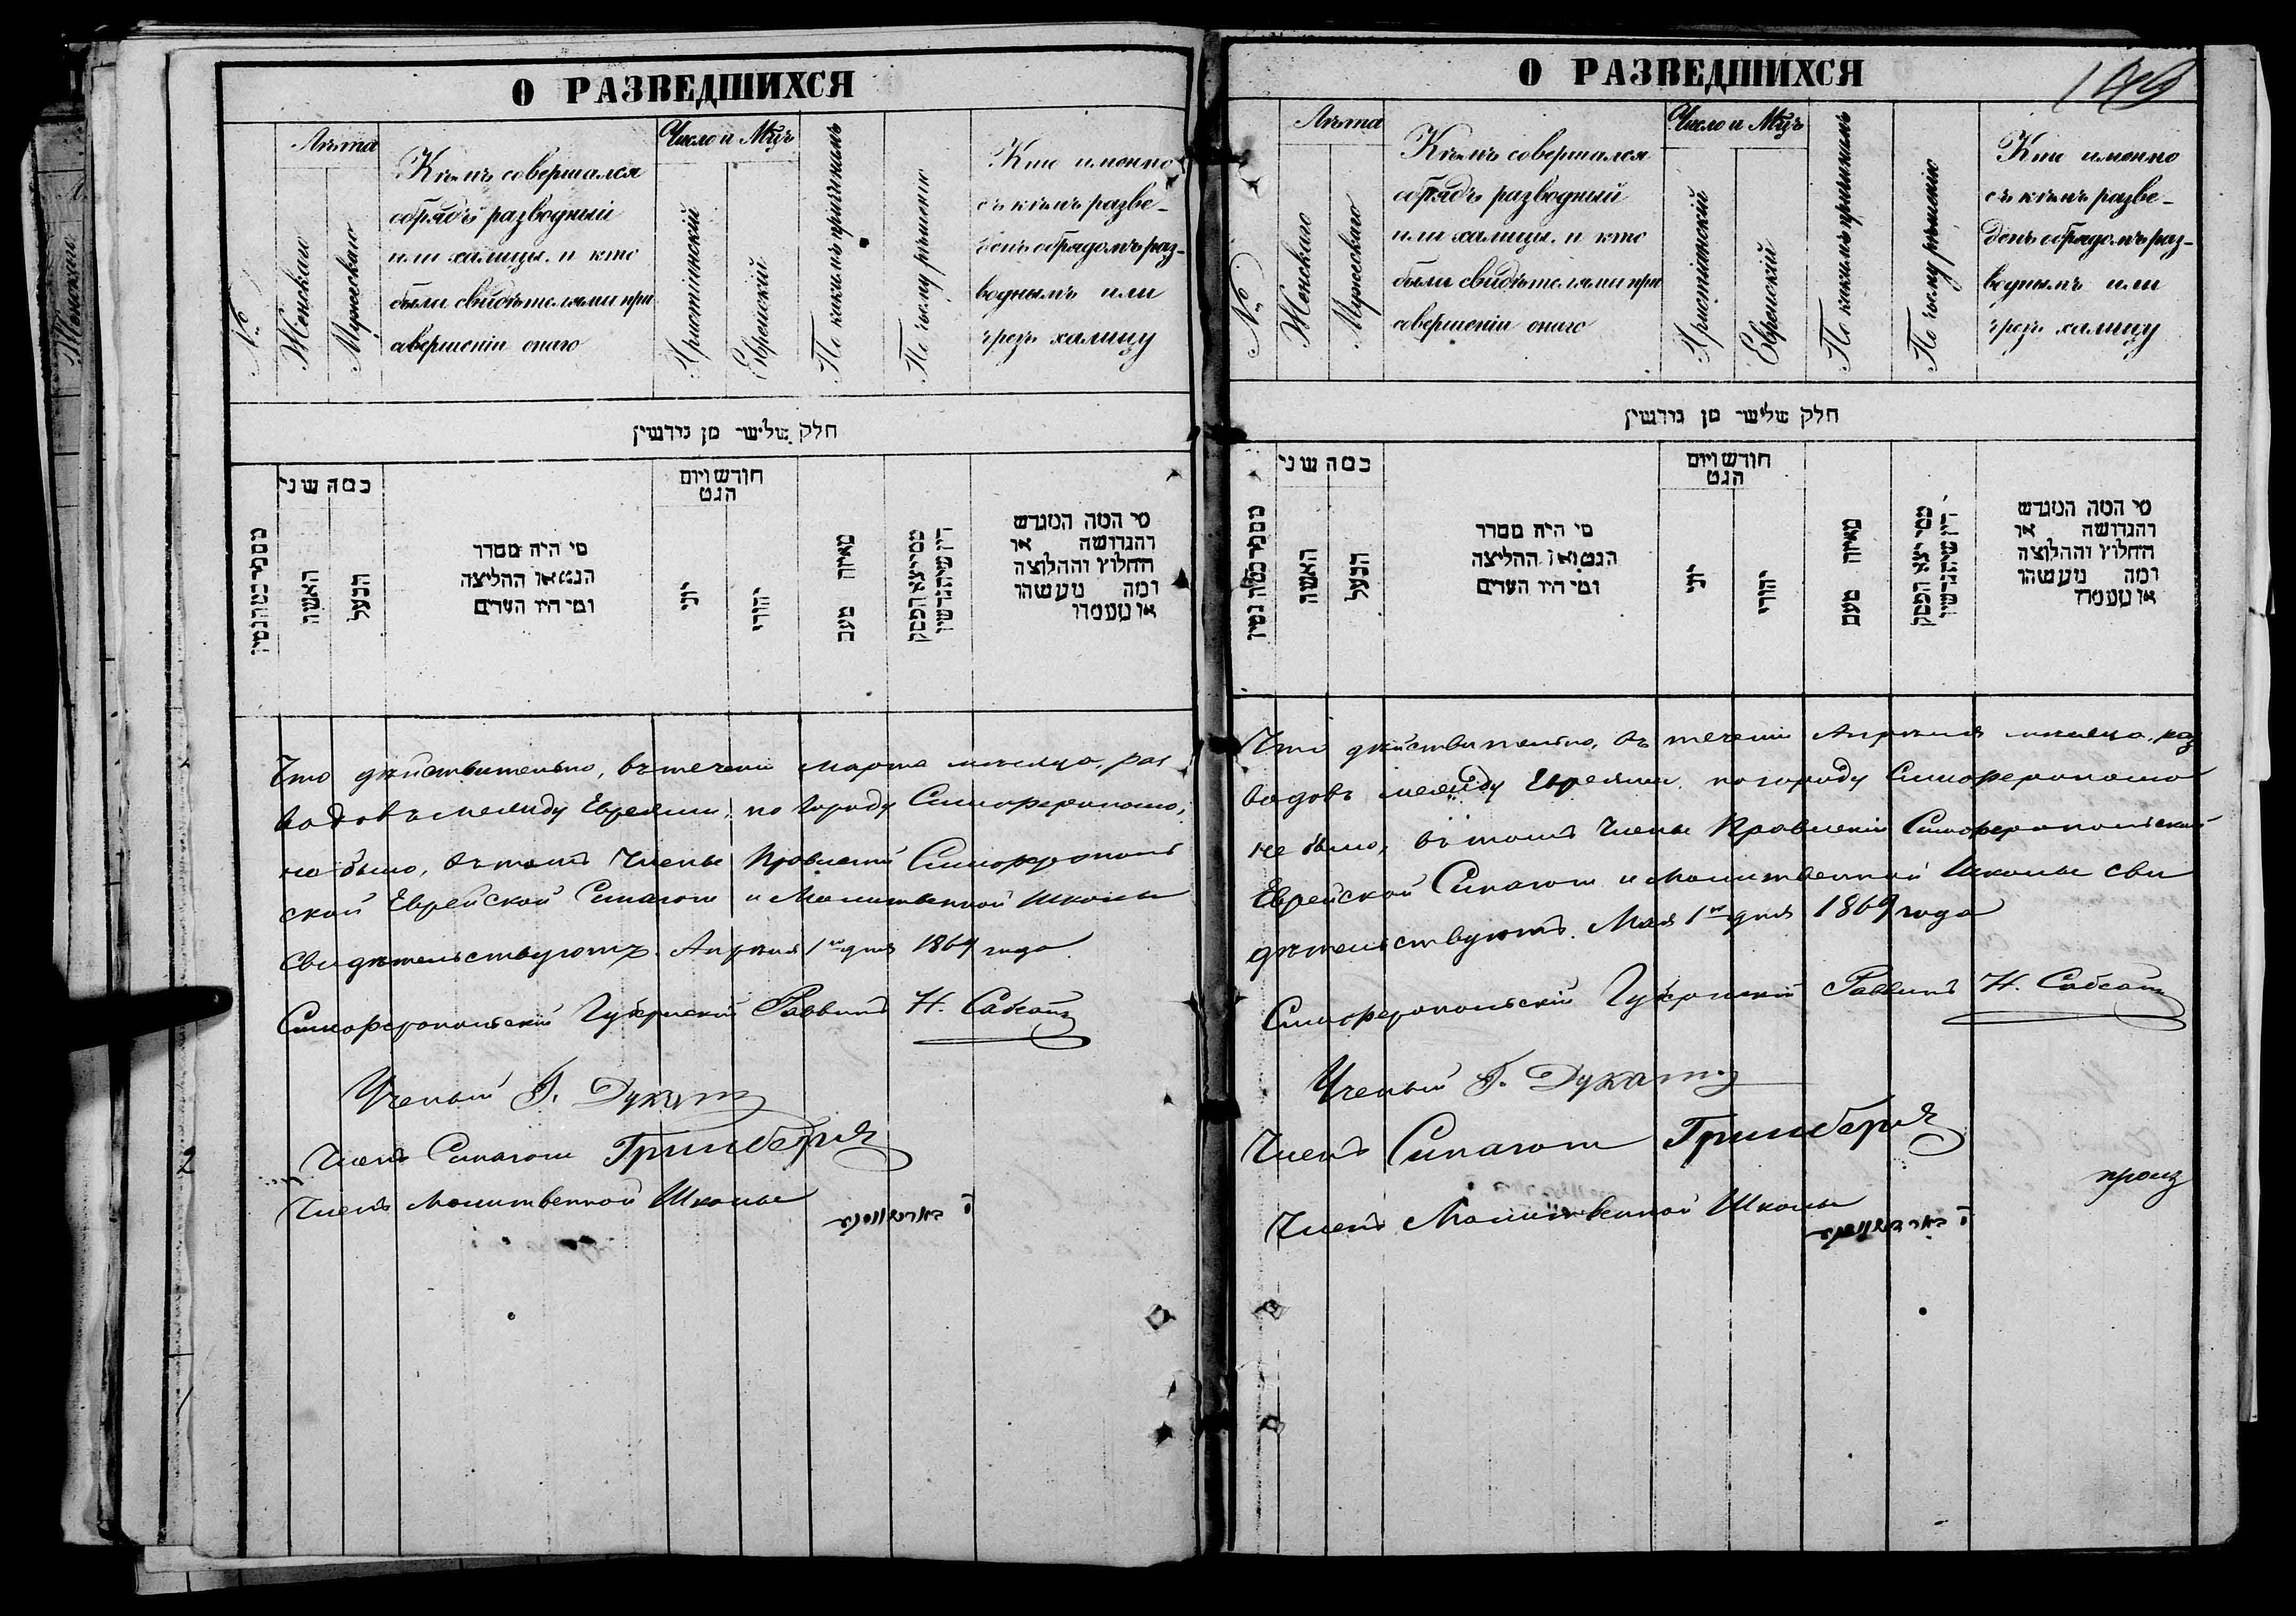 О РАЗВЕДШИХСЯ
№
Лѣта
Женскаго
Мужескаго
Кѣмъ совершался
обрядъ разводный
или халицы, и кто
были свидѣтелями при
совершеніи онаго
Число и Мѣцъ
Христіянскій
Еврейскій
По какимъ причинамъ
По чьему рѣшенію
Кто именно
съ кѣмъ разве-
денъ обрядомъ раз-
воднымъ или
чрезъ халицу
חלק שלישי מן גירושין
כמה שני
האשה
הבעל
מי היה מסדר
הגט או החליצה
ומי היו העדים
חודש ויום
הגט
יוני
יהודי
מאיזה טעם
ממי יצא הפסק
דין שיתגרשו
מי המה המגרש
והגרושה או
החלוץ והחלוצה
ומה מעשהו
או מעמדו
Что дѣйствительно, въ теченіи марта мѣсяца, раз
водовъ между Евреями, по городу Симферополю,
не было, въ томъ Члены Правленій Симферополь
ской Еврейской Синагоги и Молитвенной Школы
свидѣтельствуютъ. Апрѣля 1го дня 1869 года
Симферопольскій Губернскій Раввинъ Н. Сабсай
Ученый Г. Дукатъ
Членъ Синагоги Гринбергъ
Членъ Молитвенной Школы
О РАЗВЕДШИХСЯ
№
Лѣта
Женскаго
Мужескаго
Кѣмъ совершался
обрядъ разводный
или халицы, и кто
были свидѣтелями при
совершеніи онаго
Число и Мѣцъ
Христіянскій
Еврейскій
По какимъ причинамъ
По чьему рѣшенію
Кто именно
съ кѣмъ разве-
денъ обрядомъ раз-
воднымъ или
чрезъ халицу
חלק שלישי מן גירושין
כמה שני
האשה
הבעל
מי היה מסדר
הגט או החליצה
ומי היו העדים
חודש ויום
הגט
יוני
יהודי
מאיזה טעם
ממי יצא הפסק
דין שיתגרשו
מי המה המגרש
והגרושה או
החלוץ והחלוצה
ומה מעשהו
או מעמדו
Что дѣйствительно, въ теченіи Апрѣля мѣсяца, раз
водовъ между Евреями по городу Симферополю
не было, въ томъ Члены Правленій Симферопольской
Еврейской Синагоги и Молитвенной Школы сви
дѣтельствуютъ. Мая 1го дня 1869 года
Симферопольскій Губернскій Раввинъ Н. Сабсай
Ученый Г. Дукатъ
Членъ Синагоги Гринбергъ
Членъ Молитвенной Школы